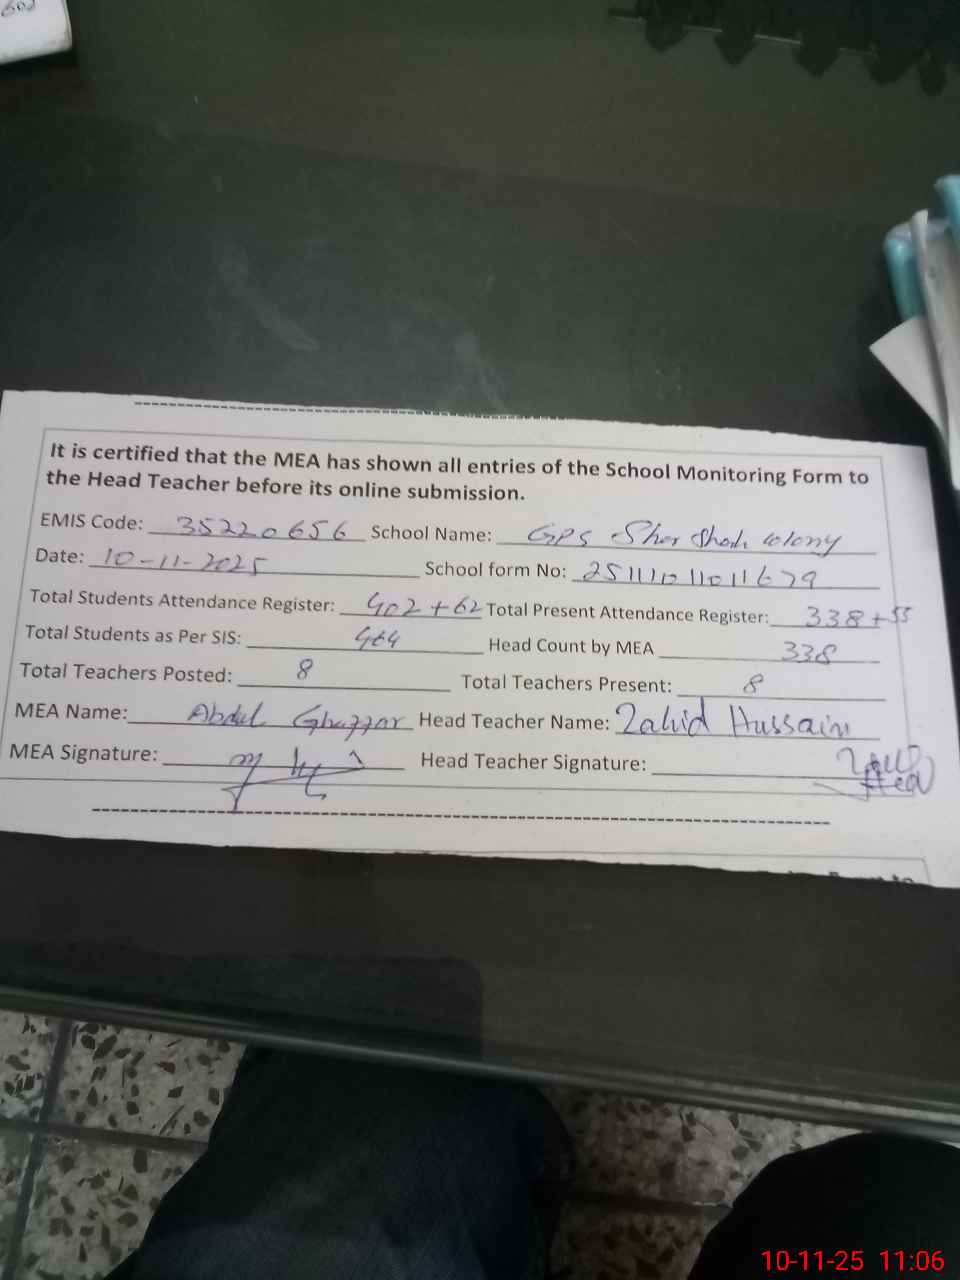 602
It is certified that the MEA has shown all entries of the School Monitoring Form to
the Head Teacher before its online submission.
EMIS Code: 35220656 School Name: GPS Sher Shah colony
Date: 10-11-2025 School form No:
Total Students Attendance Register: 402+62 Total Present Attendance Register: 338+55
Total Students as Per SIS: 464 Head Count by MEA 338
Total Teachers Posted: 8 Total Teachers Present: 8
MEA Name: Abdul Ghaffar Head Teacher Name: Zahid Hussain
MEA Signature: Head Teacher Signature:
10-11-25 11:06